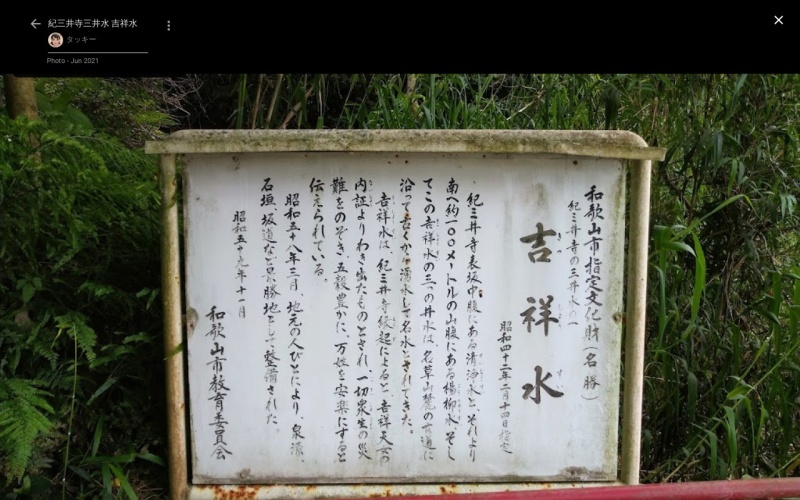 紀三井寺三井水 吉祥水
タッキー
Photo - Jun 2021
和歌山市指定文化財(名勝)
紀三井寺の三井水の一
吉祥水
昭和四十二年二月十四日指定
紀三井寺表坂中腹にある清浄水と、それより
南へ約一〇〇メートルの山腹にある楊柳水、そし
てこの吉祥水の三つの井水は、名草山麓の古道に
沿って古くから湧水して名水とされてきた。
吉祥水は、紀三井寺縁起によると、吉祥天女の
内証よりわき出たものとされ、一切衆生の災
難をのぞき、五穀豊かに、万姓を安楽にすると
伝えられている。
昭和五十八年三月、地元の人びとにより、泉源、
石垣、坂道など景勝地として整備された。
昭和五十九年十一月
和歌山市教育委員会